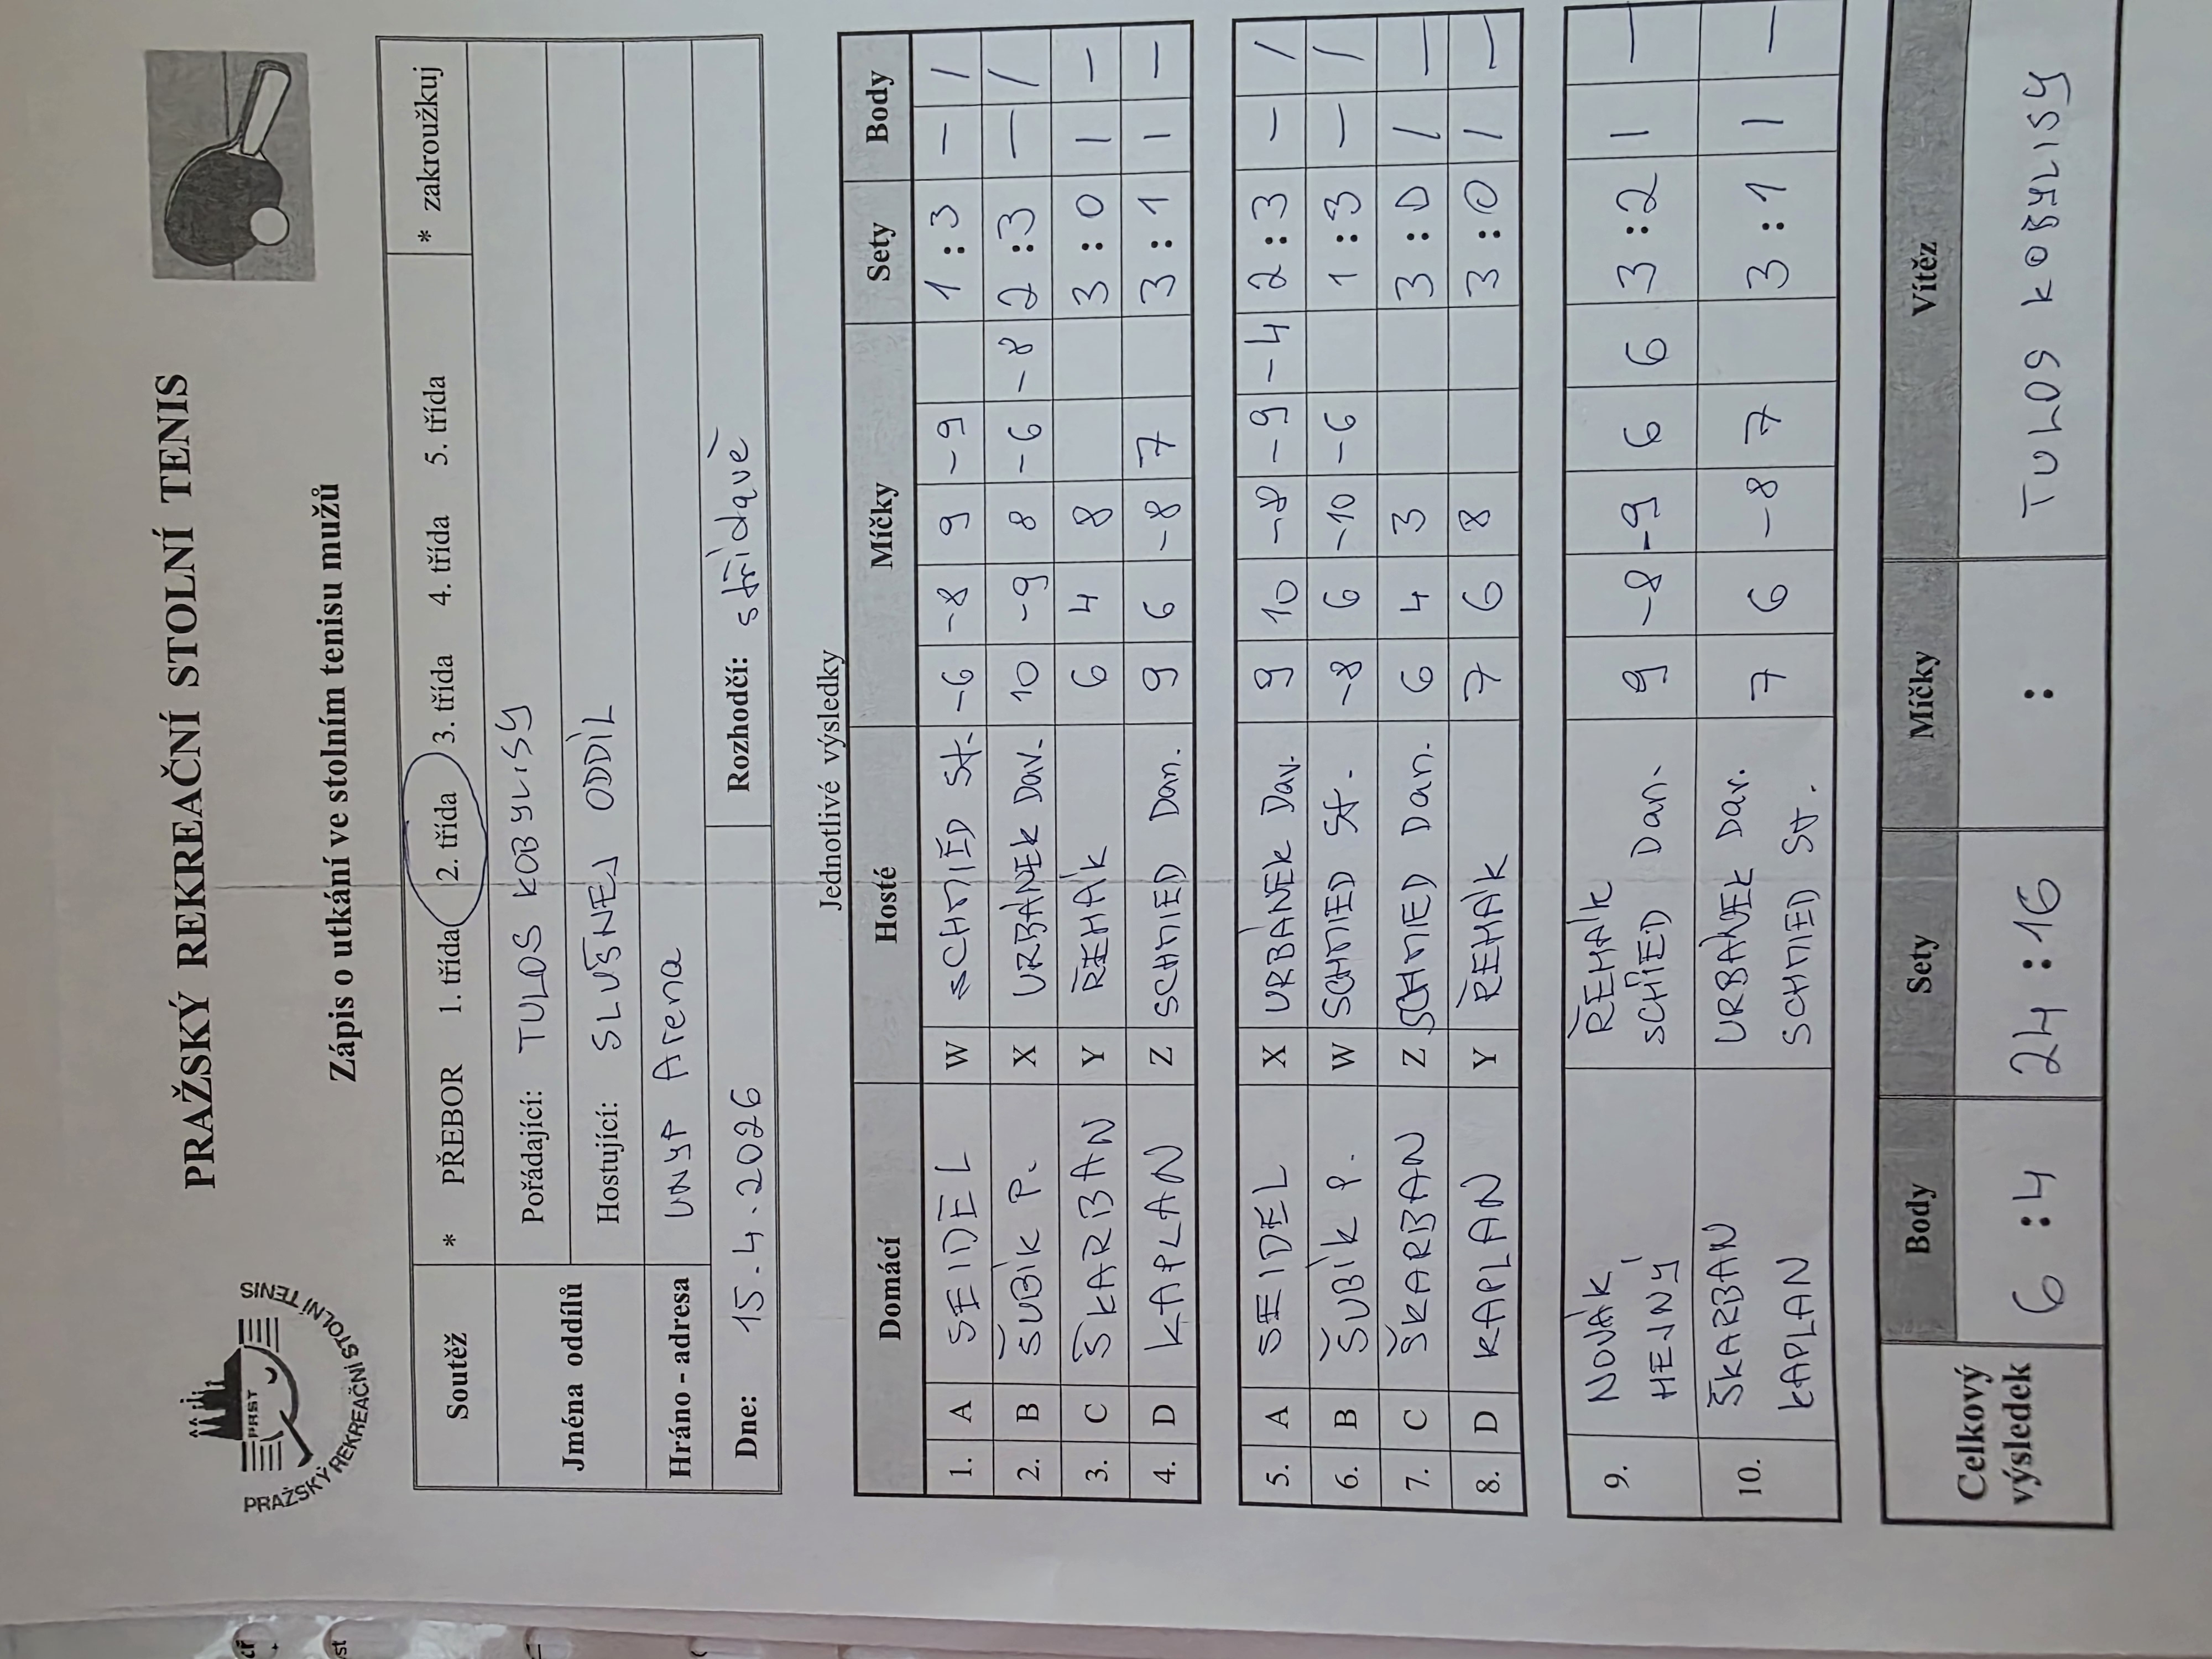 PRAŽSKÝ REKREAČNÍ STOLNÍ TENIS
PRST
PRAŽSKÝ REKREAČNÍ STOLNÍ TENIS
Zápis o utkání ve stolním tenisu mužů
Soutěž * PŘEBOR 1. třída 2. třída 3. třída 4. třída 5. třída * zakroužkuj
Jména oddílů Pořádající: TULOS KOBYLISY
Hostující: SLUŠNEJ ODDÍL
Hráno - adresa UNYP Arena
Dne: 15.4.2026 Rozhodčí: střídavě
Jednotlivé výsledky
Domácí Hosté Míčky Sety Body
1. A SEIDEL W SCHMIED St. -6 -8 9 -9 1:3 — /
2. B ŠUBÍK P. X URBÁNEK Dav. 10 -9 8 -6 -8 2:3 — /
3. C ŠKARBAN Y ŘEHÁK 6 4 8 3:0 | —
4. D KAPLAN Z SCHMIED Dan. 9 6 -8 7 3:1 | —
5. A SEIDEL X URBÁNEK Dav. 9 10 -8 -9 -4 2:3 — /
6. B ŠUBÍK P. W SCHMIED St. -8 6 -10 -6 1:3 — /
7. C ŠKARBAN Z SCHMIED Dan. 6 4 3 3:0 / —
8. D KAPLAN Y ŘEHÁK 7 6 8 3:0 / —
9. NOVÁK HEJNÝ ŘEHÁK SCHIED Dan. 9 -8 -9 6 6 3:2 | —
10. ŠKARBAN KAPLAN URBÁNEK Dav. SCHMIED St. 7 6 -8 7 3:1 | —
Celkový výsledek Body Sety Míčky Vítěz
6:4 24:16 : TULOS KOBYLISY